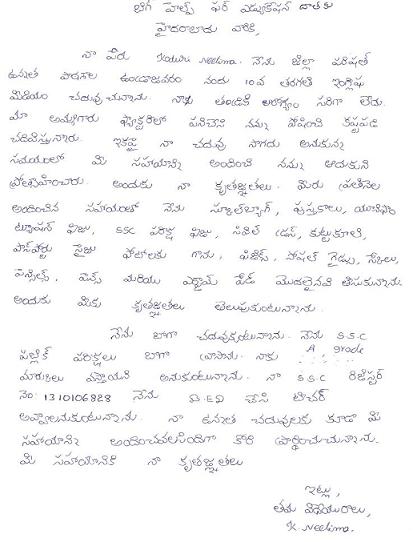 బిగ్ హెల్ప్ ఫర్ ఎడ్యుకేషన్ దాతకు
హైదరాబాదు వారికి,
నా పేరు Koturi Neelima. నేను జిల్లా పరిషత్
ఉన్నత పాఠశాల నందు 10వ తరగతి ఇంగ్లీషు
మీడియం చదువుచున్నాను. నాకు తండ్రికి ఆరోగ్యం సరిగా లేదు.
మా అమ్మగారు ఫ్యాక్టరీలో పనిచేసి నన్ను పోషించి కష్టపడి
చదివిస్తున్నారు. ఇకపై నా చదువు సాగదు అనుకున్న
సమయంలో మీ సహాయాన్ని అందించి నన్ను ఆదుకుని
ప్రోత్సహించారు. అందుకు నా కృతజ్ఞతలు. మీరు ప్రతినెల
అందించిన సహాయంతో నేను స్కూల్‌బ్యాగ్, పుస్తకాలు, యూనిఫాం
ట్యూషన్ ఫీజు, SSC పరీక్ష ఫీజు, సివిల్ డ్రస్, కుట్టుకూలి,
పాస్‌పోర్టు సైజు ఫోటోలకు గాను, ఫిజిక్స్, సోషల్ గైడ్సు, స్కేలు,
పెన్సిల్స్, పెన్స్ మరియు ఎగ్జామ్ పేడ్ మొదలైనవి తీసుకున్నాను.
అందుకు మీకు కృతజ్ఞతలు తెలుపుకుంటున్నాను.
నేను బాగా చదువుకుంటున్నాను. నేను S.S.C
పబ్లిక్ పరీక్షలు బాగా వ్రాసాను. నాకు A grade
మార్కులు వస్తాయని అనుకుంటున్నాను. నా S.S.C రిజిస్టర్
నెం: 1310106828 నేను D.ED చేసి టీచర్
అవ్వాలనుకుంటున్నాను. నా ఉన్నత చదువులకు కూడా మీ
సహాయాన్ని అందించవలసిందిగా కోరి ప్రార్థించుచున్నాను.
మీ సహాయానికి నా కృతజ్ఞతలు
ఇట్లు,
తమ విధేయురాలు,
K. Neelima.